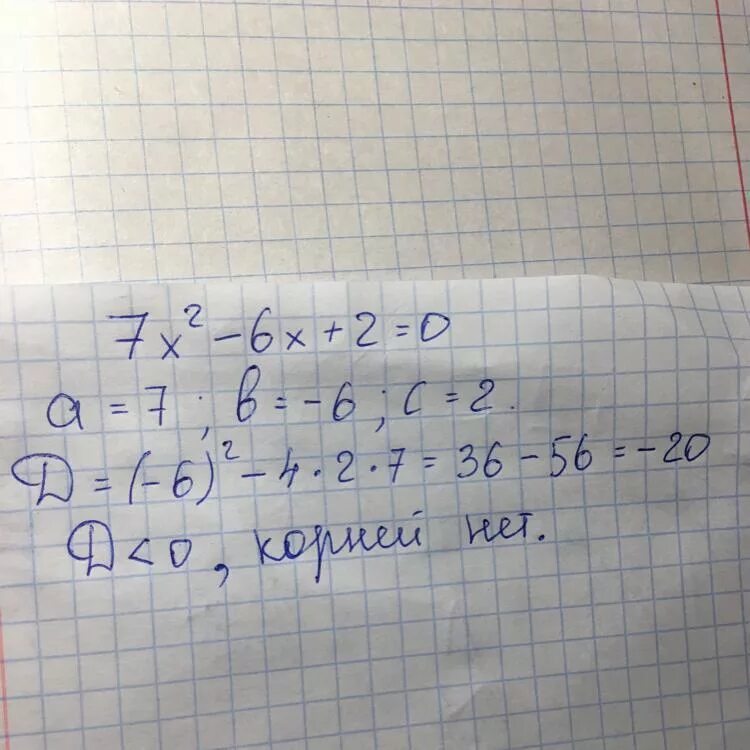 7x² - 6x + 2 = 0
a = 7 ; b = -6 ; c = 2.
D = (-6)² - 4 · 2 · 7 = 36 - 56 = -20
D < 0 , корней нет.